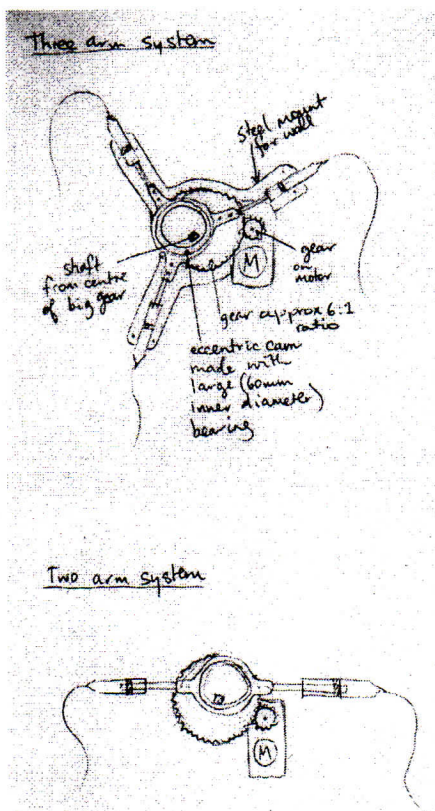 Three arm system
steel mount
for wall
shaft
from centre
of big gear
gear
on
motor
M
gear approx 6:1
ratio
eccentric cam
made with
large (60mm
inner diameter)
bearing
Two arm system
M